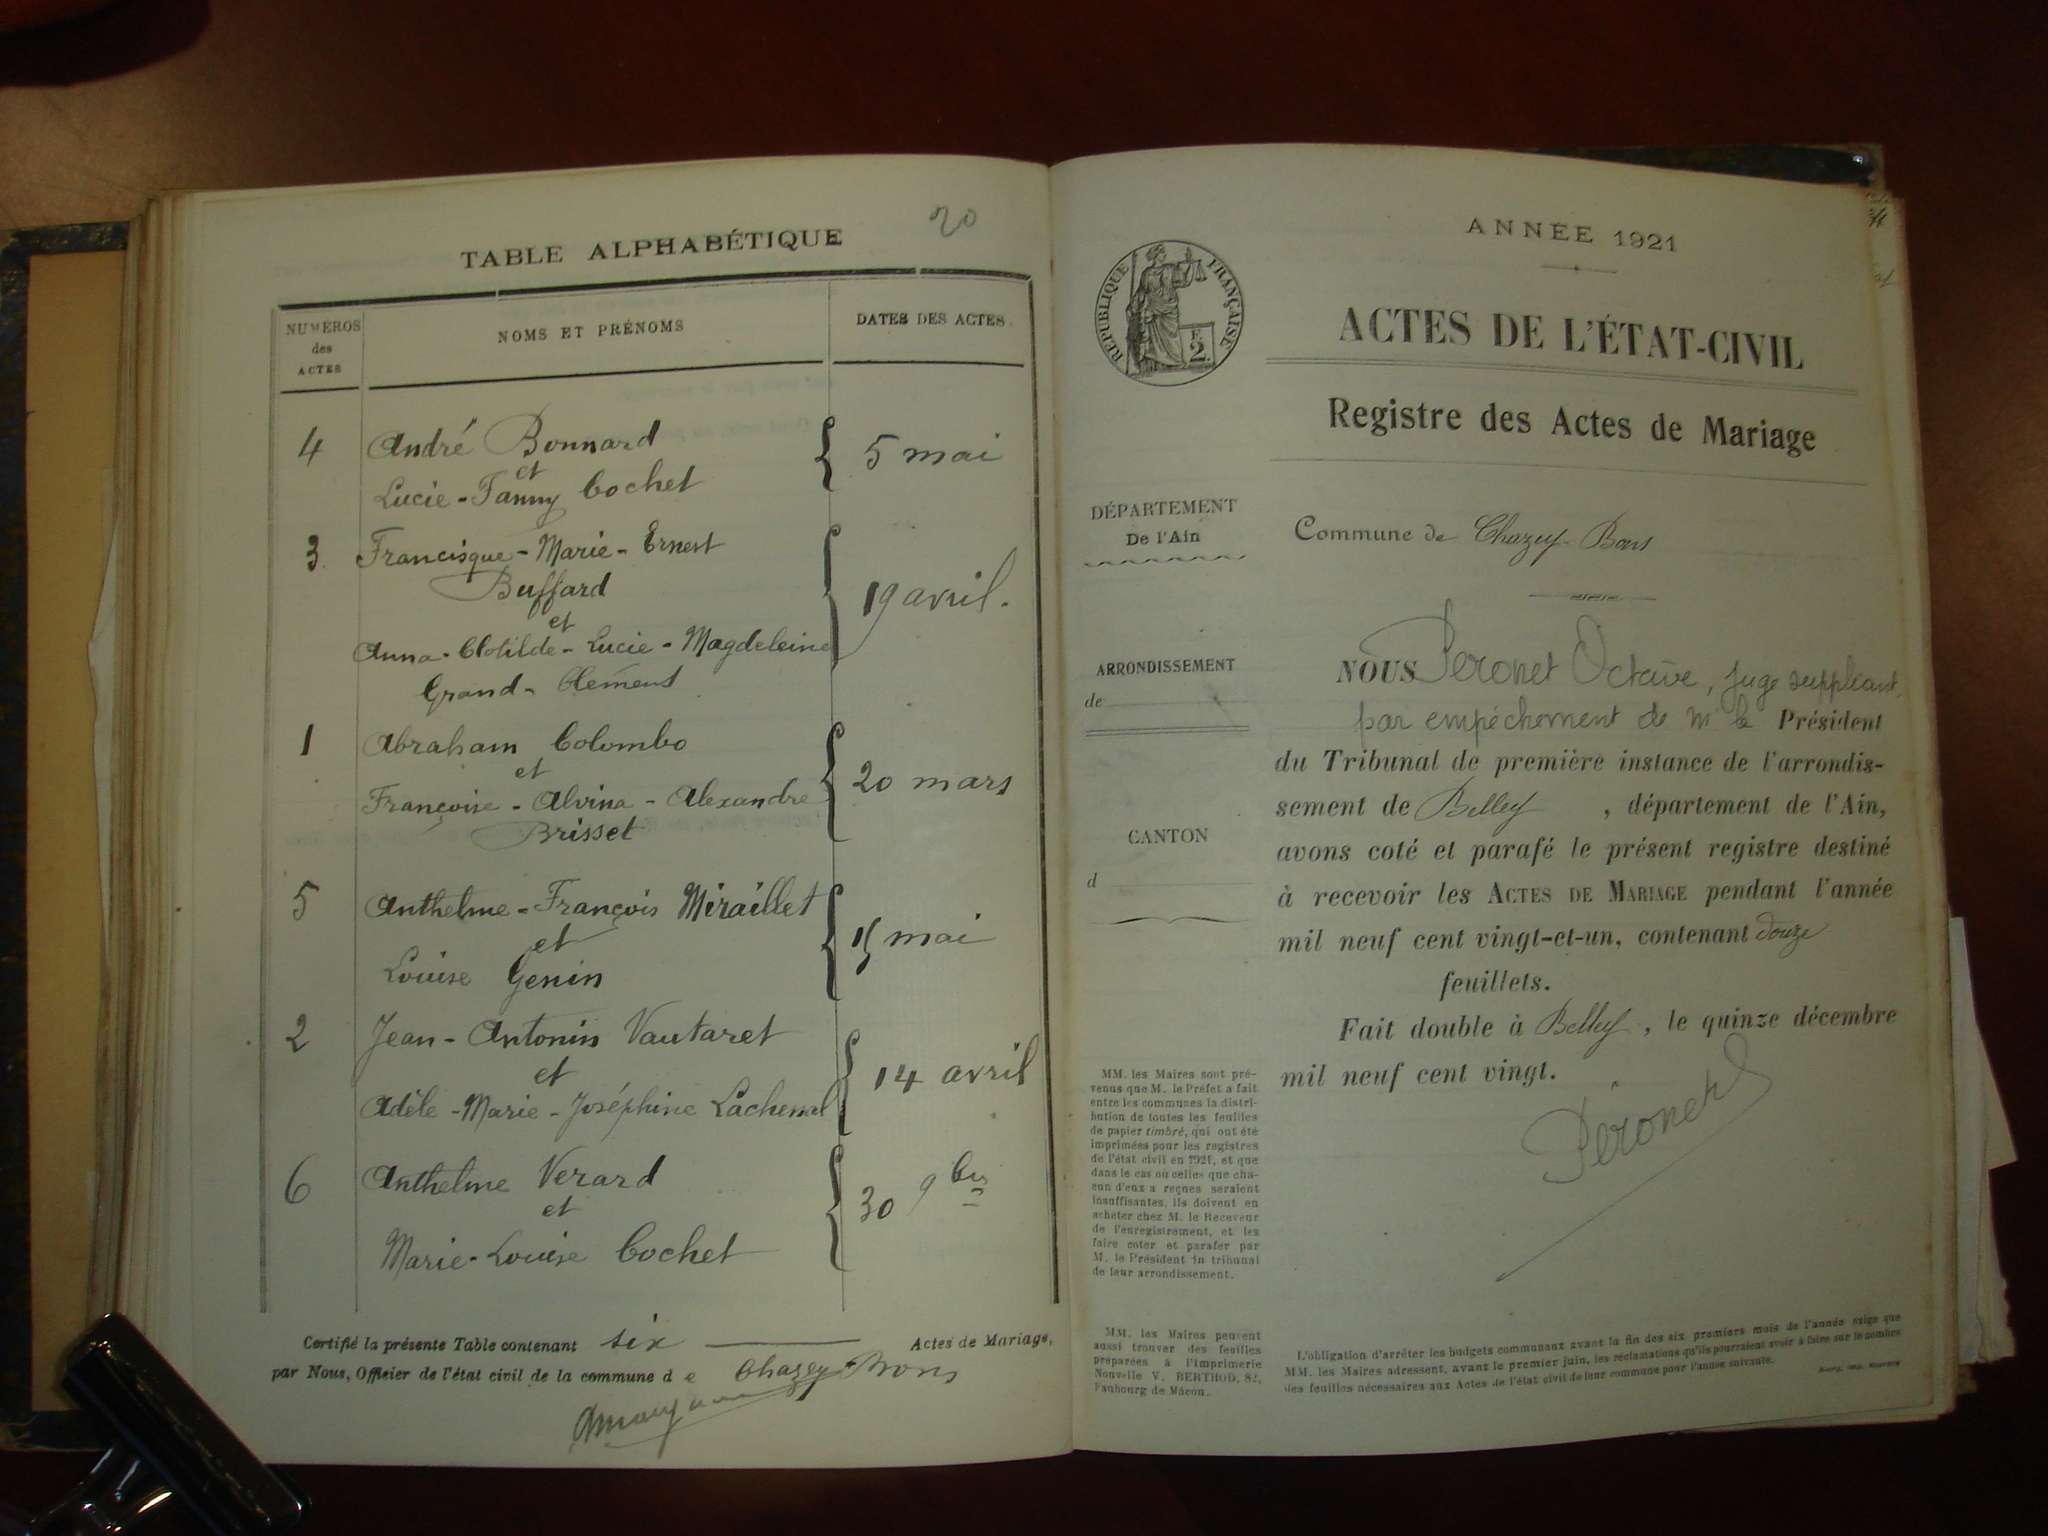 20
TABLE ALPHABÉTIQUE
NUMÉROS
des
ACTES
NOMS ET PRÉNOMS
DATES DES ACTES
4
André Bonnard
et
Lucie-Fanny Cochet
5 mai
3.
Francisque-Marie-Ernest
Buffard
et
Anna-Clotilde-Lucie-Magdeleine
Grand-Clément
19 avril.
1
Abraham Colombo
et
Françoise-Alvina-Alexandre
Brisset
20 mars
5
Anthelme-François Miraillet
et
Louise Genin
15 mai
2
Jean-Antonin Vautaret
et
Adèle-Marie-Joséphine Lachenal
14 avril
6
Anthelme Verard
et
Marie-Louise Cochet
30 9bre
Certifié la présente Table contenant six Actes de Mariage,
par Nous, Officier de l'état civil de la commune de Chazey-Bons
ANNÉE 1921
RÉPUBLIQUE FRANÇAISE
F.
2.
ACTES DE L'ÉTAT-CIVIL
Registre des Actes de Mariage
DÉPARTEMENT
De l'Ain
Commune de Chazey-Bons
ARRONDISSEMENT
de
CANTON
d
NOUS Peronet Octave, juge suppléant,
par empêchement de Mr le Président
du Tribunal de première instance de l'arrondis-
sement de Belley, département de l'Ain,
avons coté et parafé le présent registre destiné
à recevoir les ACTES DE MARIAGE pendant l'année
mil neuf cent vingt-et-un, contenant douze
feuillets.
Fait double à Belley, le quinze décembre
mil neuf cent vingt.
Péronet
MM. les Maires sont pré-
venus que M. le Préfet a fait
entre les communes la distri-
bution de toutes les feuilles
de papier timbré, qui ont été
imprimées pour les registres
de l'état civil en 1921, et que
dans le cas où celles que cha-
cun d'eux a reçues seraient
insuffisantes, ils doivent en
acheter chez M. le Receveur
de l'enregistrement, et les
faire coter et parafer par
M. le Président du tribunal
de leur arrondissement.
MM. les Maires peuvent
aussi trouver des feuilles
préparées à l'Imprimerie
Nouvelle V. BERTHOD, 82,
Faubourg de Mâcon.
L'obligation d'arrêter les budgets communaux avant la fin des six premiers mois de l'année exige que
MM. les Maires adressent, avant le premier juin, les réclamations qu'ils pourraient avoir à faire sur le nombre
des feuilles nécessaires aux Actes de l'état civil de leur commune pour l'année suivante.